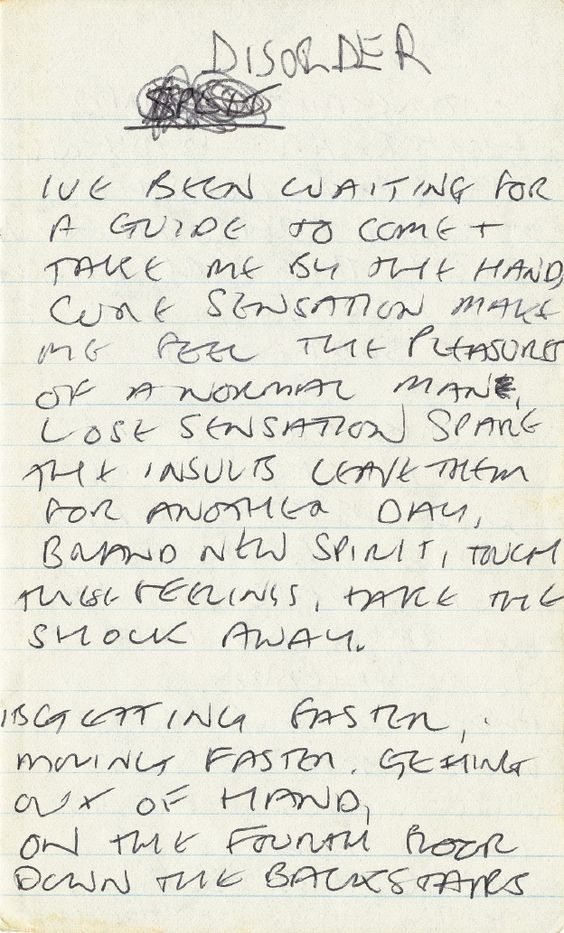 DISORDER
IVE BEEN WAITING FOR
A GUIDE TO COME +
TAKE ME BY THE HAND,
COULD SENSATION MAKE
ME FEEL THE PLEASURES
OF A NORMAL MAN,
LOSE SENSATION SPARE
THE INSULTS LEAVE THEM
FOR ANOTHER DAY,
BRAND NEW SPIRIT, TOUCH
FEELINGS, TAKE THE
SHOCK AWAY.
GETTING FASTER,
MOVING FASTER. GETTING
OUT OF HAND,
ON THE FOURTH FLOOR
DOWN THE BACKSTAIRS